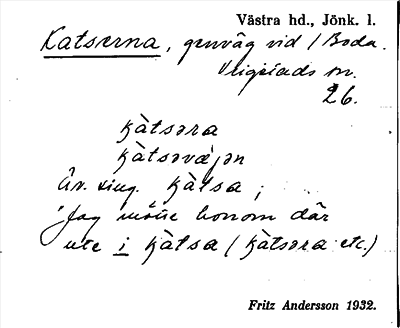 Västra hd., Jönk. l.
Katserna, genväg vid / Boda.
m.
26.
kàtsəra
kàtsəvæjən
Äv. sing. kàtsa ;
"Jag mötte honom där
ute i kàtsa (kàtsəra etc.)
Fritz Andersson 1932.